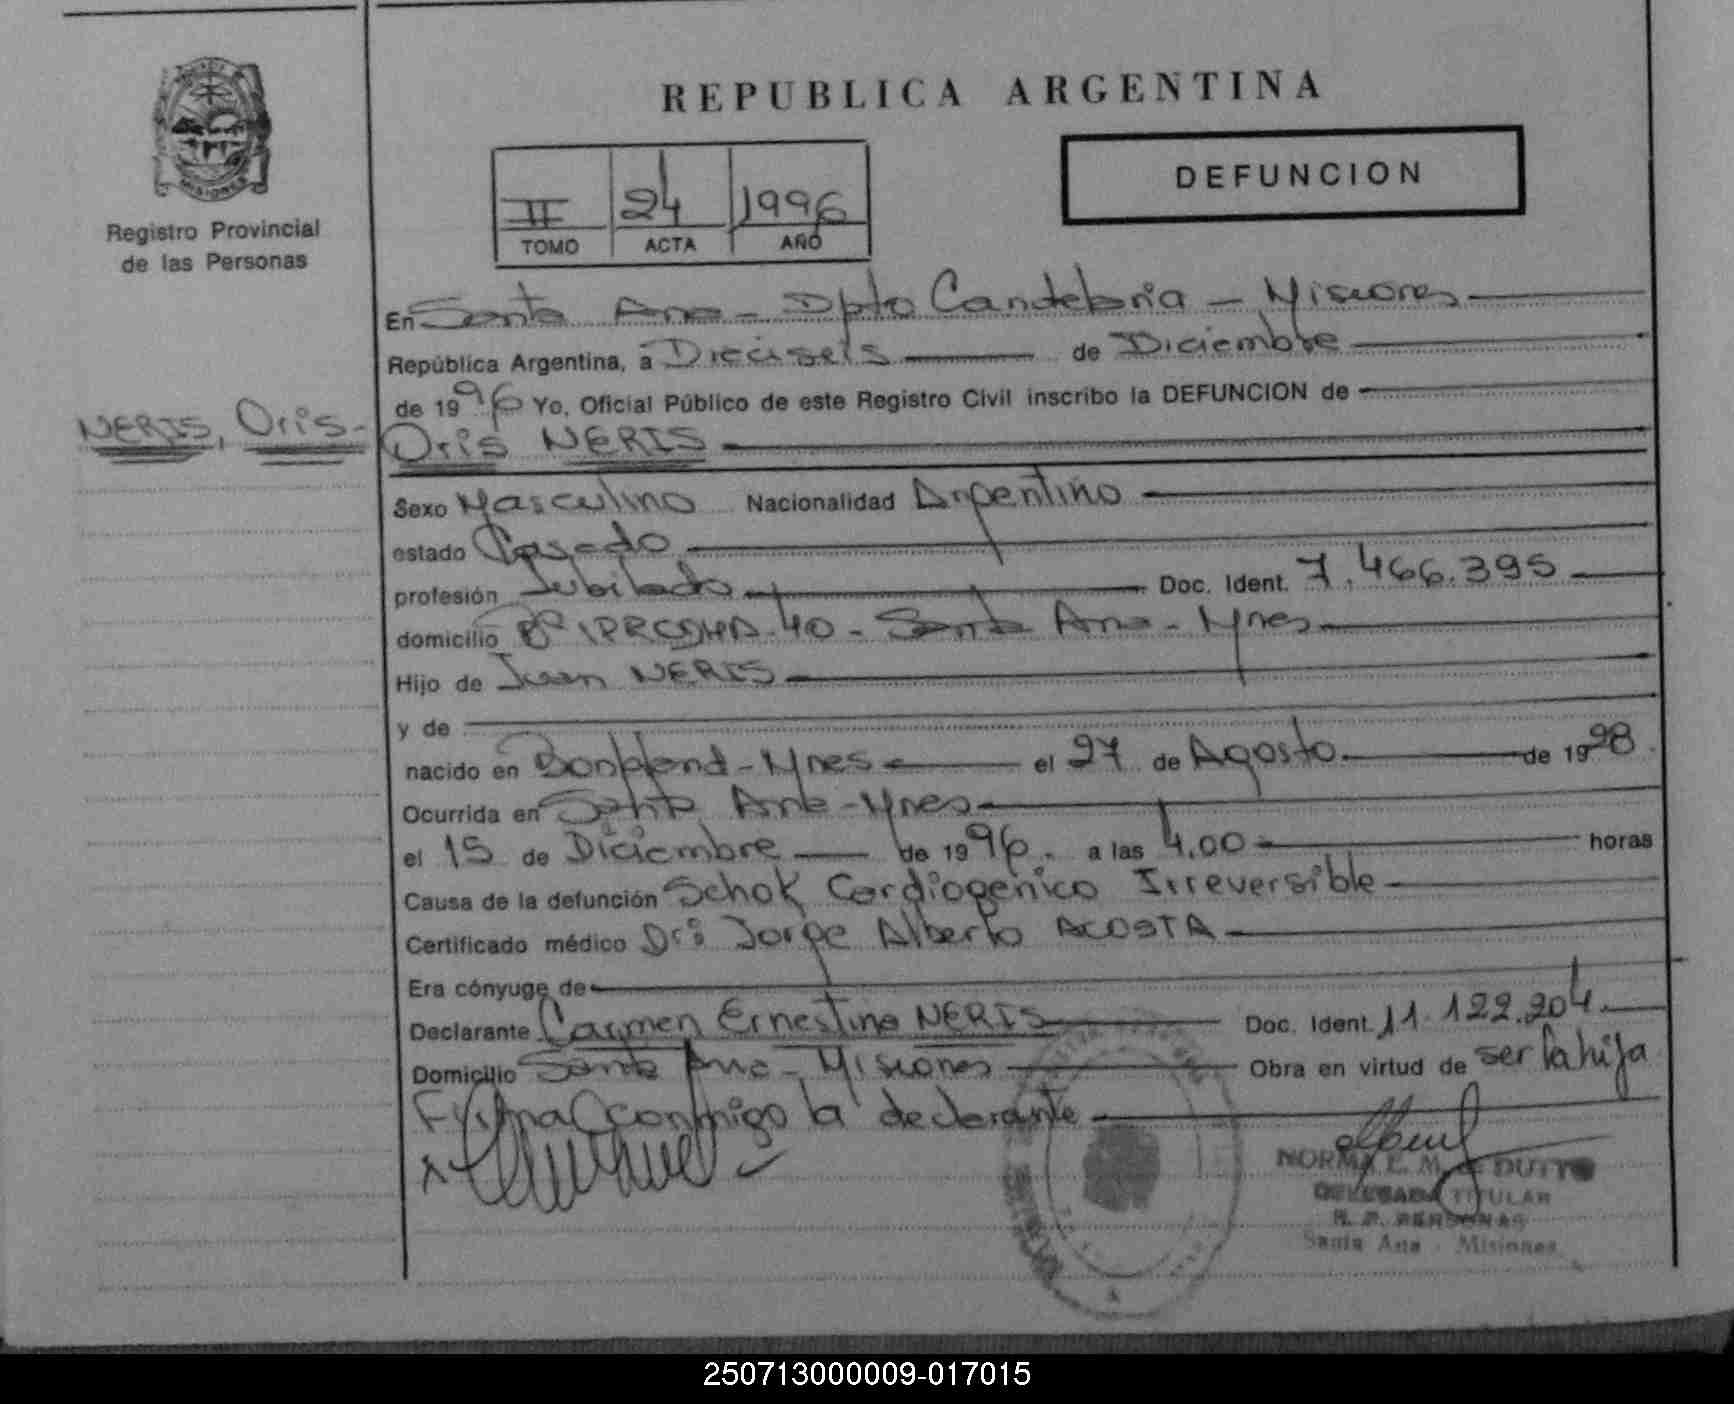 REPUBLICA ARGENTINA
MISIONES
Registro Provincial
de las Personas
II 24 1996
TOMO ACTA AÑO
DEFUNCION
En Santa Ana - Dpto Candelaria - Misiones
República Argentina, a Dieciseis de Diciembre
de 1996 Yo, Oficial Público de este Registro Civil inscribo la DEFUNCION de
NERIS, Oris-
Oris NERIS
Sexo Masculino Nacionalidad Argentino
estado Casado
profesión Jubilado Doc. Ident. 7.466.395
domicilio B° IPRODHA-40- Santa Ana - Mnes
Hijo de Juan NERIS
y de
nacido en Bonpland - Mnes el 27 de Agosto de 1928.
Ocurrida en Santa Ana - Mnes
el 15 de Diciembre de 1996. a las 4.00 horas
Causa de la defunción Schok Cardiogenico Irreversible
Certificado médico Dr: Jorge Alberto ACOSTA
Era cónyuge de
Declarante Carmen Ernestina NERIS Doc. Ident. 11.122.204.
Domicilio Santa Ana - Misiones Obra en virtud de ser la hija
Firma conmigo la declarante
NORMA E. M. de DUTTO
DELEGADA TITULAR
R. P. PERSONAS
Santa Ana - Misiones
250713000009-017015